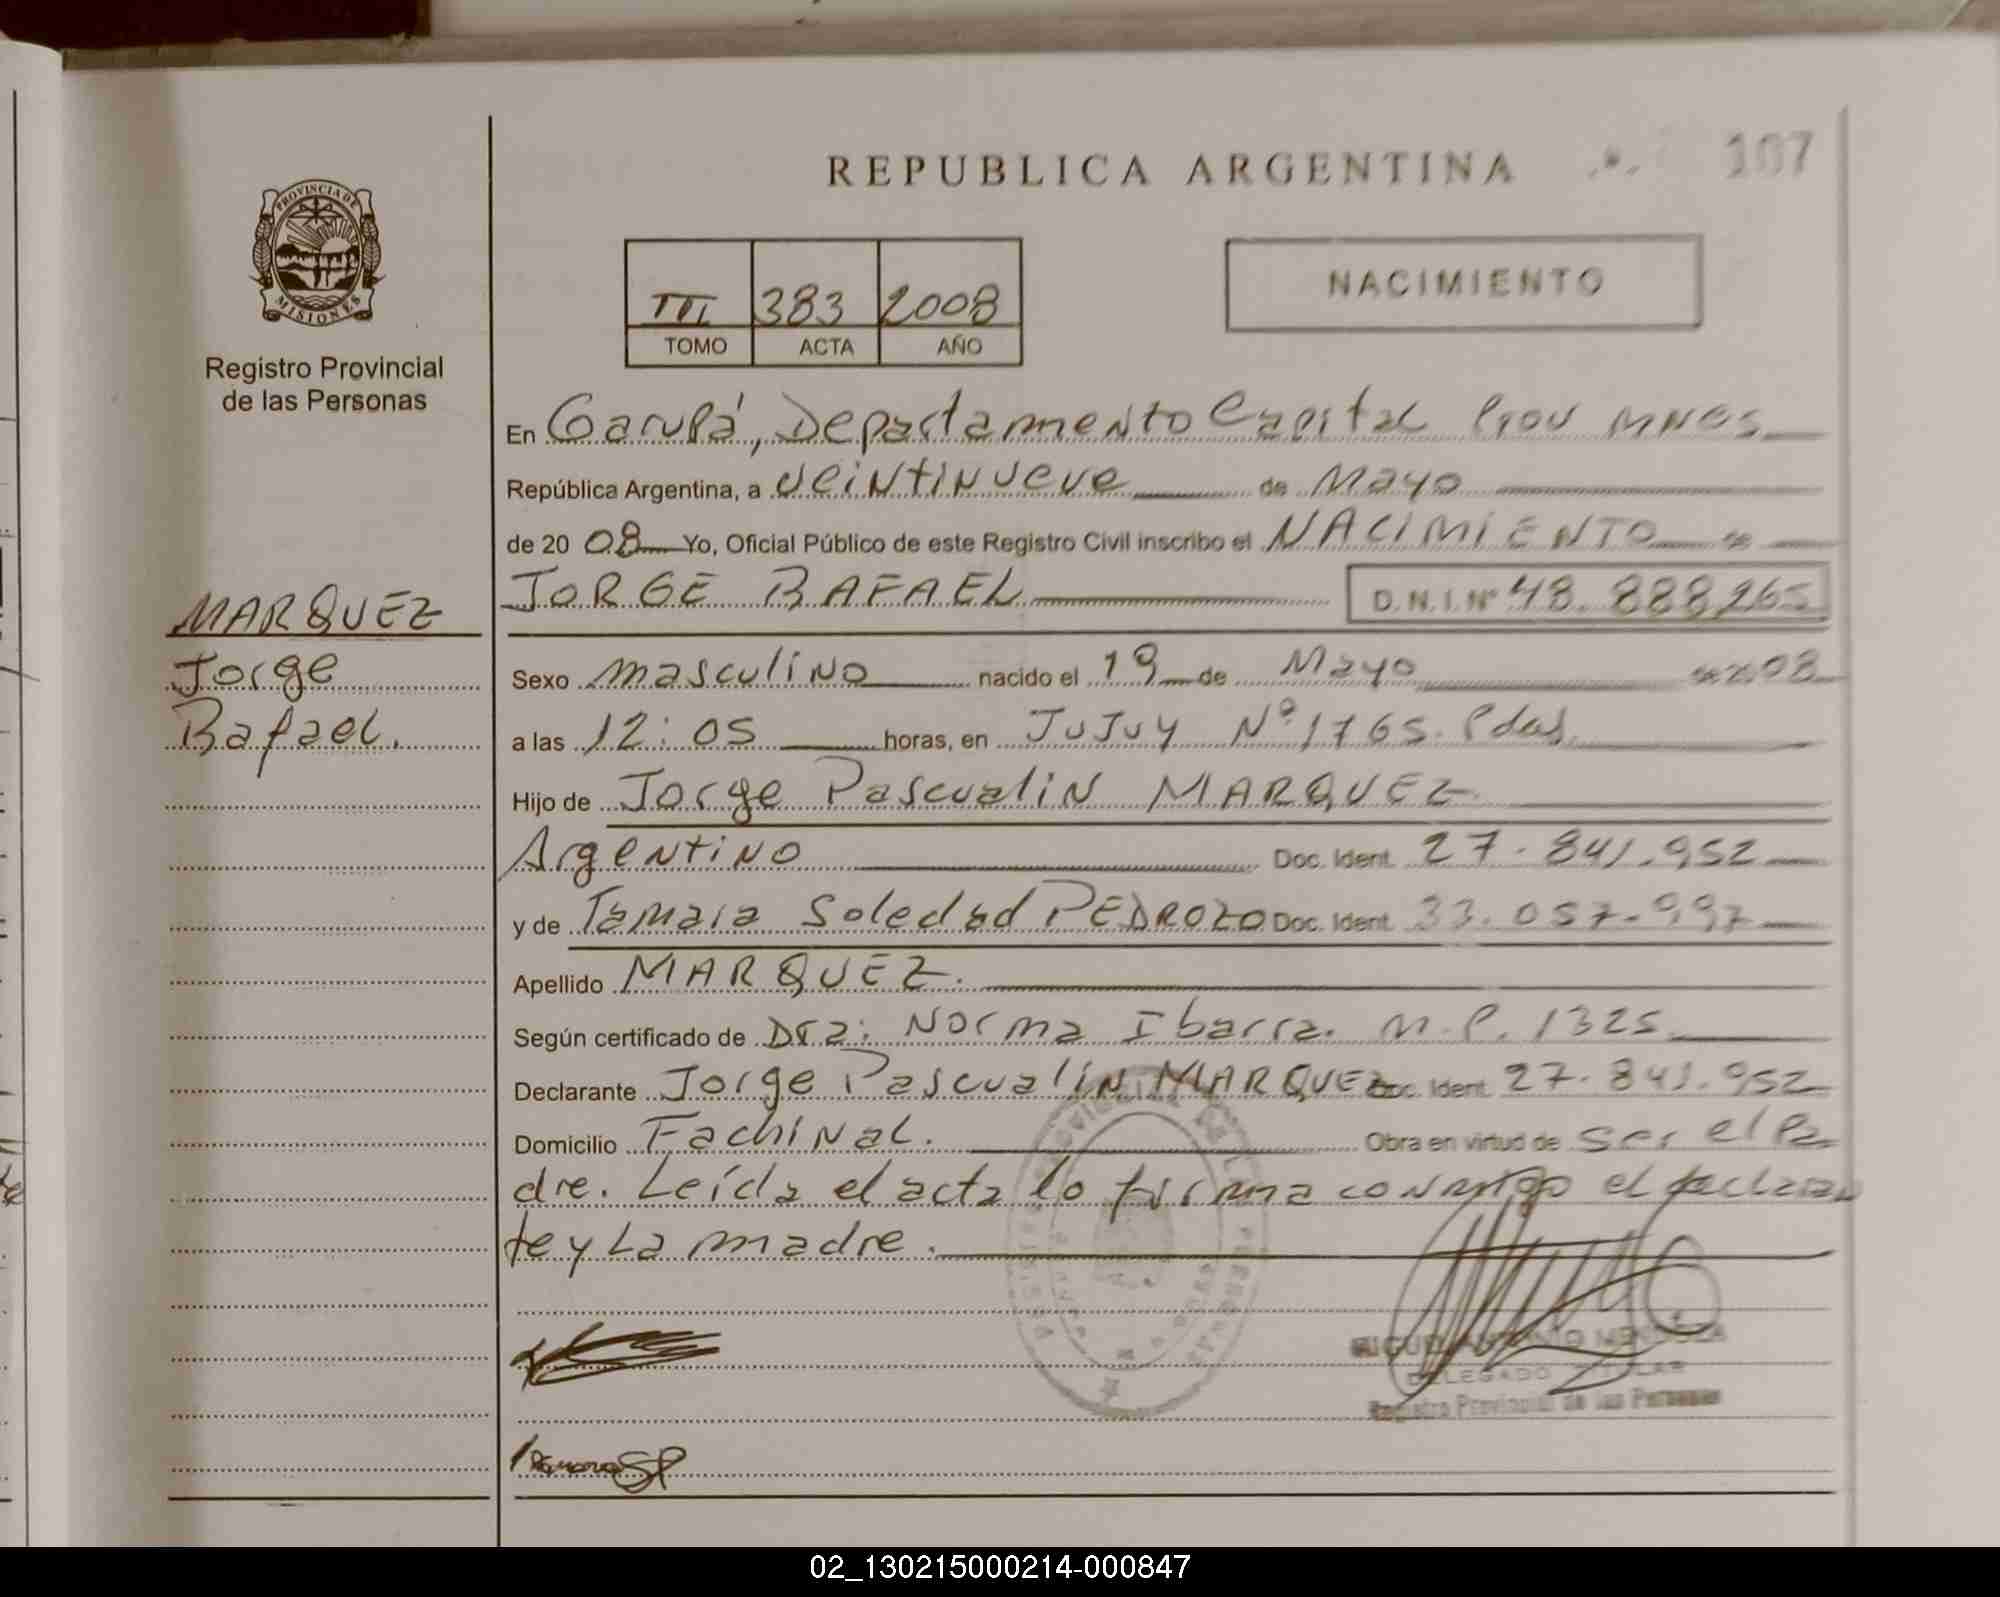 REPUBLICA ARGENTINA
107
PROVINCIA DE
MISIONES
Registro Provincial
de las Personas
III 383 2008
TOMO ACTA AÑO
NACIMIENTO
En Garupá, Departamento Capital Prov MNES
República Argentina, a veintinueve de Mayo
de 20 08 Yo, Oficial Público de este Registro Civil inscribo el NACIMIENTO de
JORGE RAFAEL D.N.I. Nº 48.888,265
MARQUEZ
Jorge
Rafael.
Sexo masculino nacido el 19 de Mayo de 2008
a las 12:05 horas, en Jujuy Nº 1765. Pdas.
Hijo de Jorge Pascualin MARQUEZ
Argentino Doc. Ident. 27.841.952
y de Tamara Soledad PEDROZO Doc. Ident. 33.057.997
Apellido MARQUEZ.
Según certificado de Dra: Norma Ibarra. M.P. 1325
Declarante Jorge Pascualin MARQUEZ Doc. Ident. 27.841.952
Domicilio Fachinal. Obra en virtud de Ser el Pa
dre. Leída el acta lo firma conmigo el declaran
te y La madre.
MIGUEL ANTONIO MENDOZA
DELEGADO TITULAR
Registro Provincial de las Personas
02_130215000214-000847